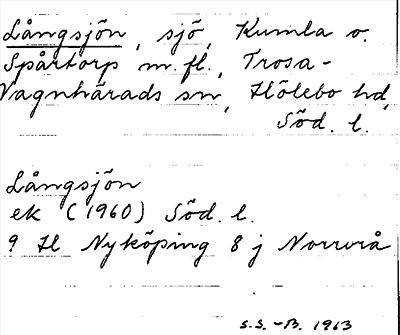 Långsjön, sjö, Kumla o.
Spårtorp m.fl., Trosa-
Vagnhärads sn, Hölebo hd,
Söd. l.
Långsjön
ek (1960) Söd. l.
9 H Nyköping 8 j Norrvrå
S.S.-B. 1963